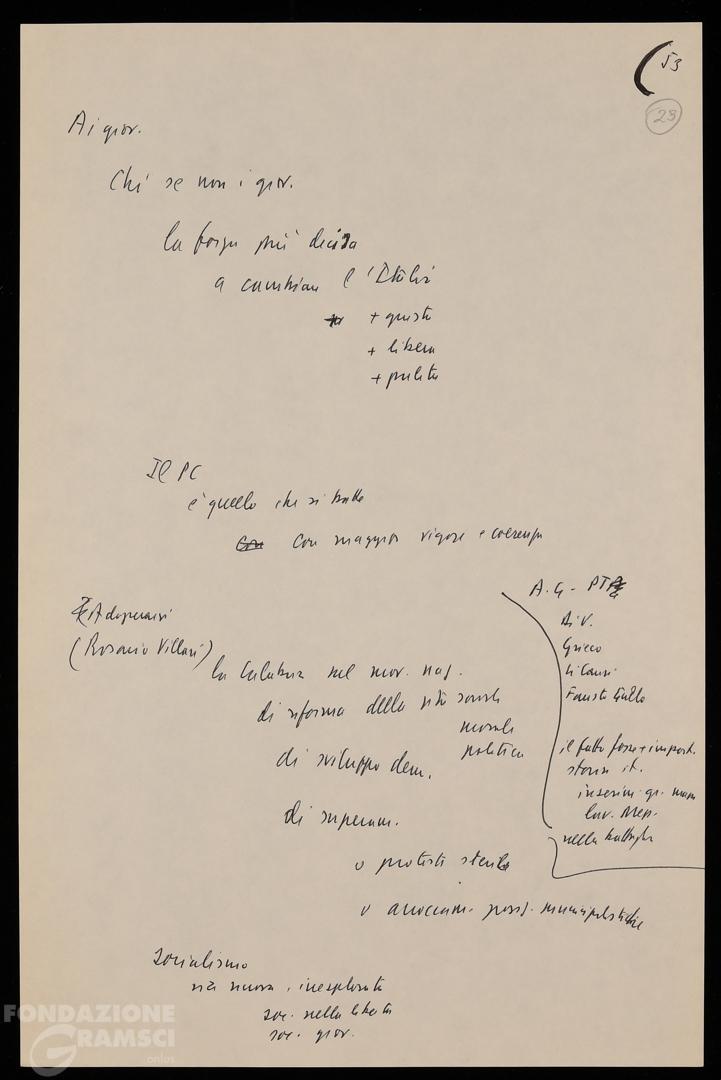 53
23
Ai giov.
Chi se non i giov.
la forza più decisa
a cambiare l'Italia
+ giusta
+ libera
+ pulita
Il PC
è quello che si batte
con con maggior vigore e coerenza
A.G - PT
Di V.
Grieco
Li Causi
Fausto Gullo
il fatto forse + import.
storia it.
inserim. gr. masse
lav. Mer.
nella battaglia
Adoperarsi
(Rosario Villari)
la Calabria nel mov. naz.
di riforma della vita sociale
morale
politica
di sviluppo dem.
di superam.
o protesta sterile
o municipalistiche
Socialismo
via nuova, inesplorata
soc. nella libertà
soc. giov.
FONDAZIONE
GRAMSCI
onlus